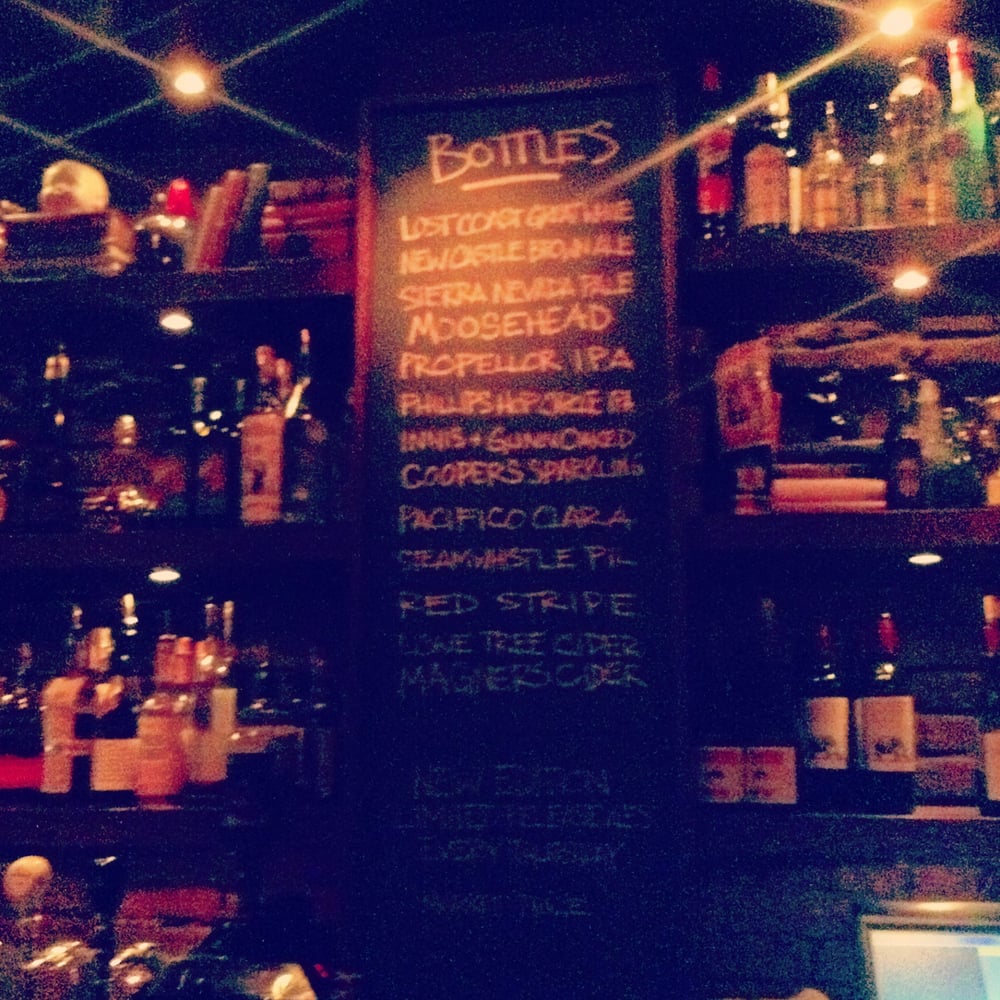 BOTTLES
LOST COAST GREAT WHITE
NEWCASTLE BROWN ALE
SIERRA NEVADA PALE
MOOSEHEAD
PROPELLOR IPA
PHILLIPS HOP CIRCLE IPA
INNIS + GUNN OAKED
COOPERS SPARKLING
PACIFICO CLARA
STEAMWHISTLE PIL
RED STRIPE
LONE TREE CIDER
MAGNERS CIDER
NEW EDITION
LIMITED RELEASES
EVERY THURSDAY